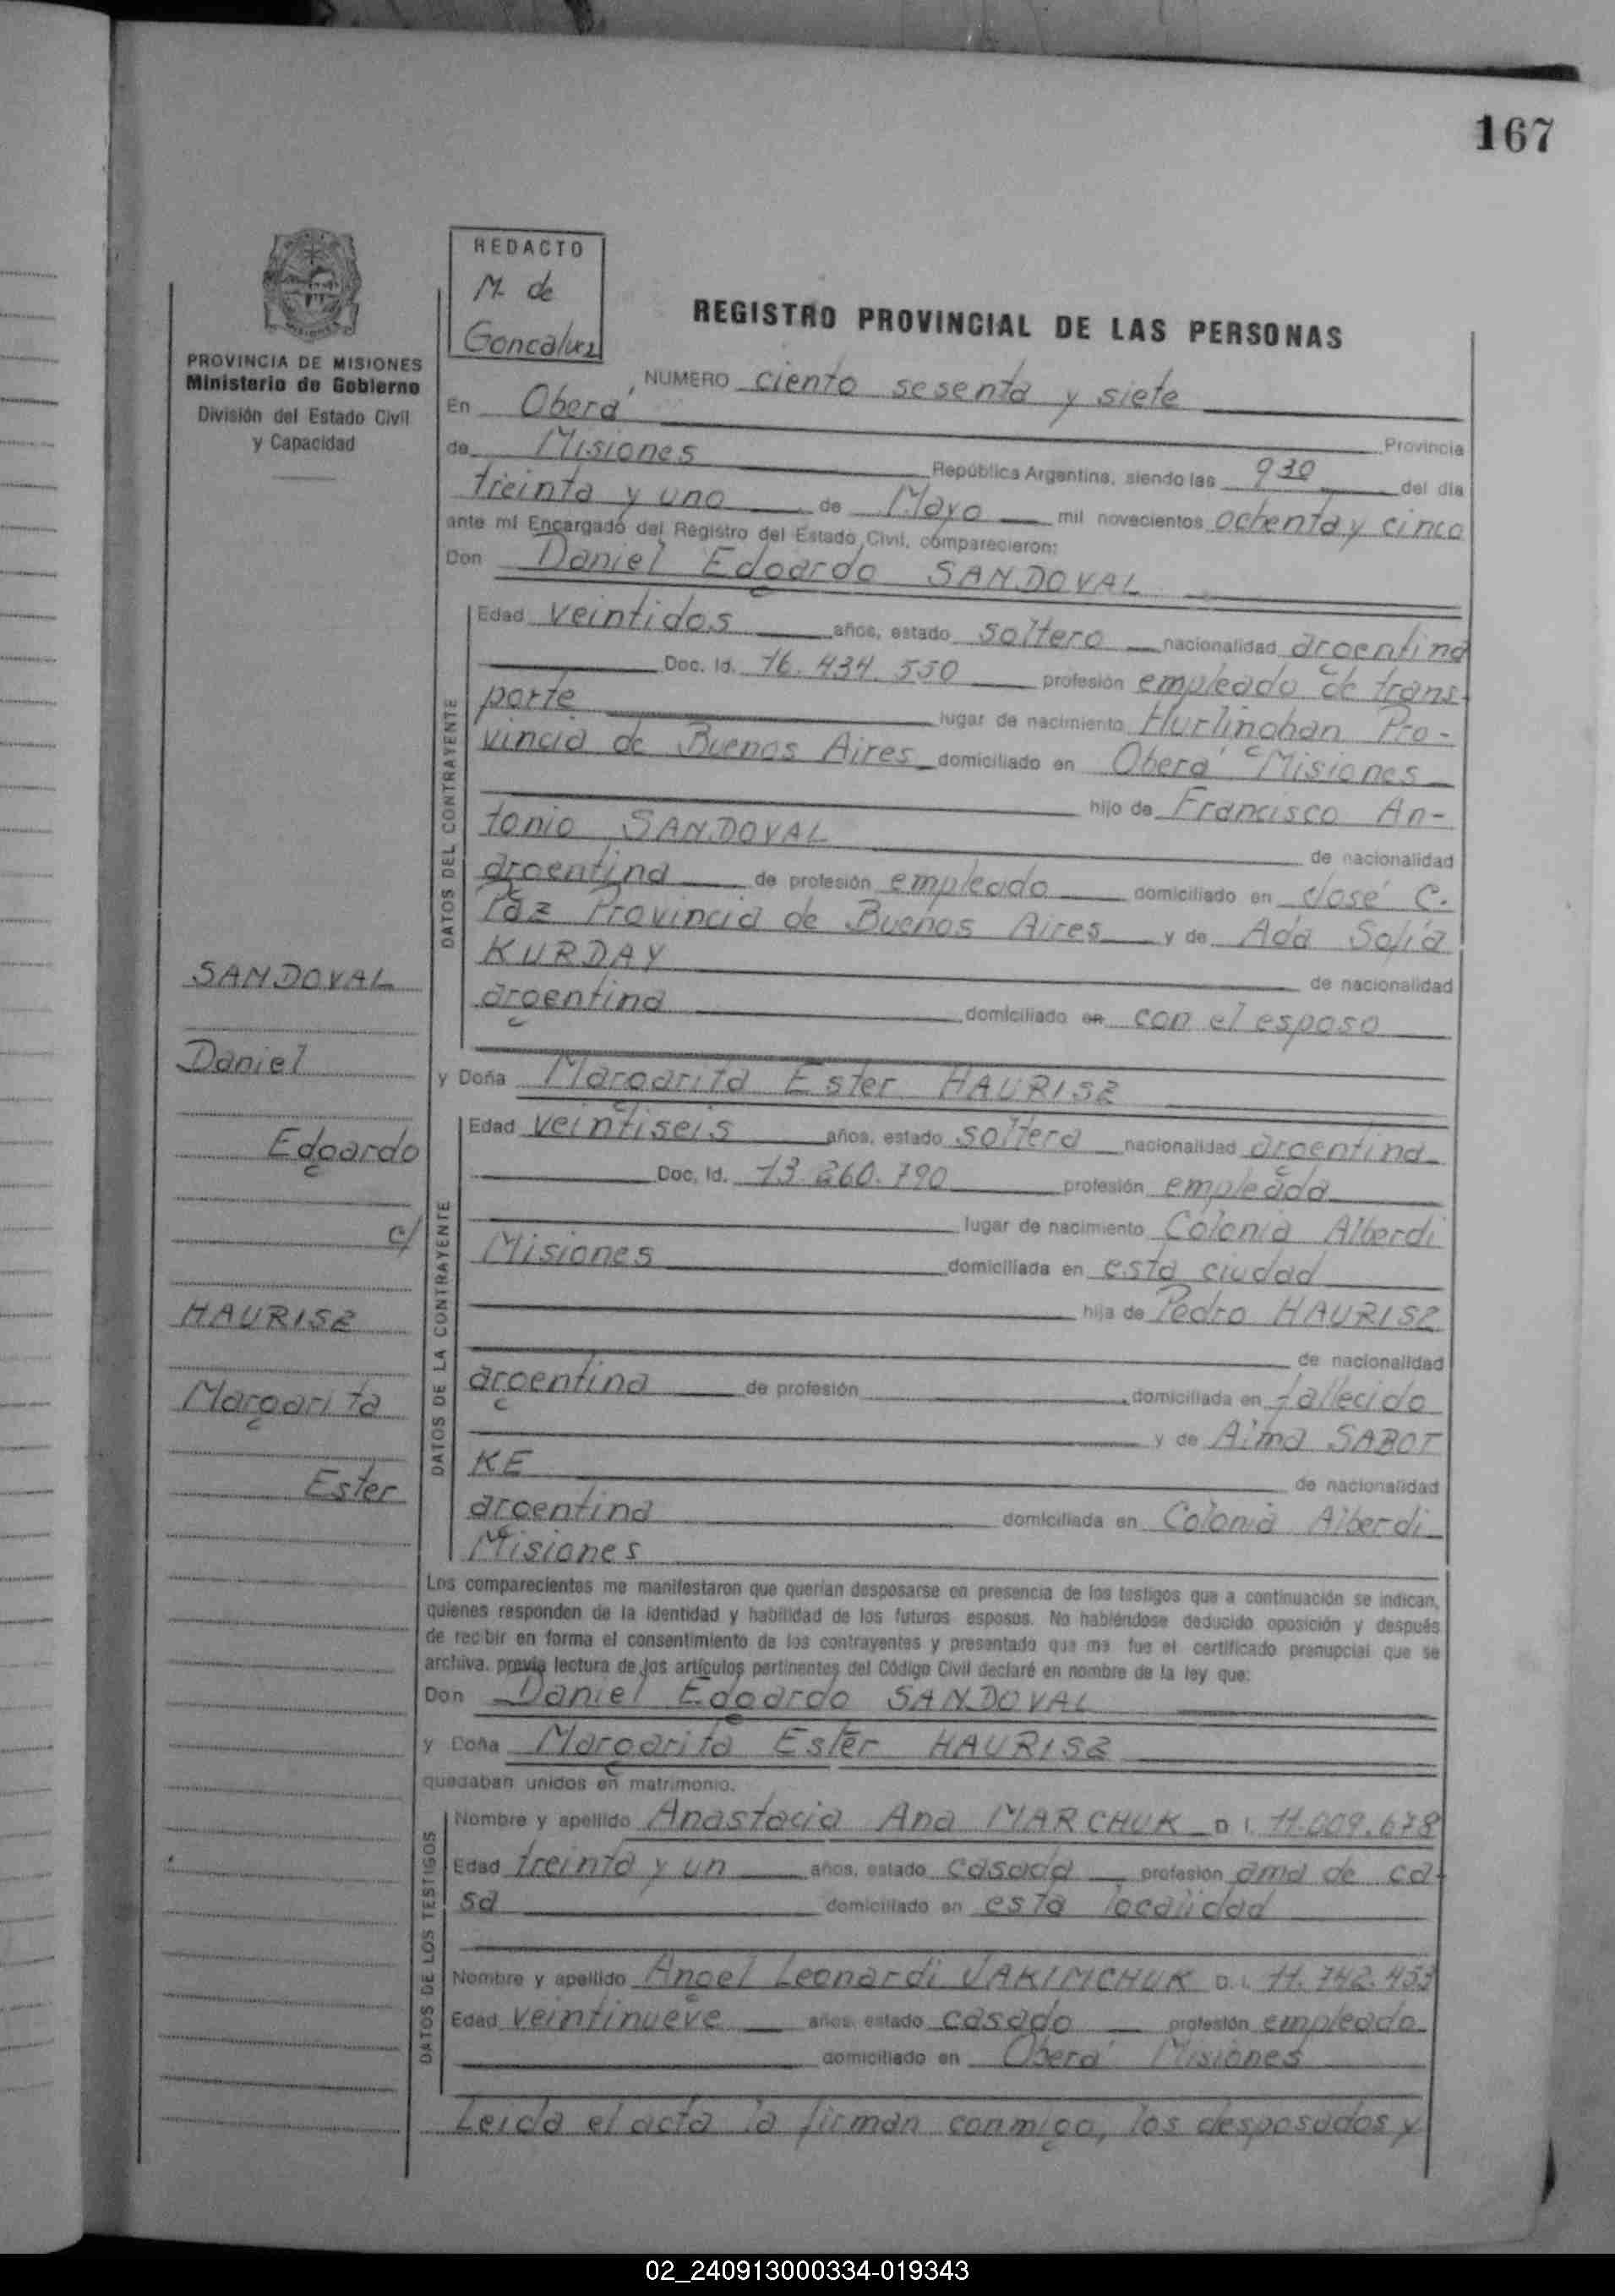 167
REDACTO
M. de
Goncalvez
PROVINCIA DE MISIONES
Ministerio de Gobierno
División del Estado Civil
y Capacidad
REGISTRO PROVINCIAL DE LAS PERSONAS
NUMERO ciento sesenta y siete
En Oberá Provincia
de Misiones República Argentina, siendo las 930 del día
treinta y uno de Mayo mil novecientos ochenta y cinco
ante mí Encargado del Registro del Estado Civil, comparecieron:
Don Daniel Edgardo SANDOVAL
DATOS DEL CONTRAYENTE
Edad veintidos años, estado soltero nacionalidad argentina
Doc. Id. 16.434.550 profesión empleado de trans-
porte lugar de nacimiento Hurlinghan Pro-
vincia de Buenos Aires domiciliado en Oberá Misiones
hijo de Francisco An-
tonio SANDOVAL de nacionalidad
argentina de profesión empleado domiciliado en José C.
Paz Provincia de Buenos Aires y de Ada
KURDAY de nacionalidad
argentina domiciliado en con el esposo
y Doña Margarita Ester HAURISZ
DATOS DE LA CONTRAYENTE
Edad veintiseis años, estado soltera nacionalidad argentina
Doc. Id. 13.260.790 profesión empleada
lugar de nacimiento Colonia Alberdi
Misiones domiciliada en esta ciudad
hija de Pedro HAURISZ
de nacionalidad
argentina de profesión domiciliada en fallecido
y de Alma SABOT
KE de nacionalidad
argentina domiciliada en Colonia Alberdi
Misiones
Los comparecientes me manifestaron que querían desposarse en presencia de los testigos que a continuación se indican,
quienes responden de la identidad y habilidad de los futuros esposos. No habiéndose deducido oposición y después
de recibir en forma el consentimiento de los contrayentes y presentado que me fue el certificado prenupcial que se
archiva, previa lectura de los artículos pertinentes del Código Civil declaré en nombre de la ley que:
Don Daniel Edgardo SANDOVAL
y Doña Margarita Ester HAURISZ
quedaban unidos en matrimonio.
DATOS DE LOS TESTIGOS
Nombre y apellido Anastacia Ana MARCHUK D. I. 11.009.678
Edad treinta y un años, estado casada profesión ama de ca-
sa domiciliado en esta localidad
Nombre y apellido Angel Leonardi JAKIMCHUK D. I. 11.742.453
Edad veintinueve años, estado casado profesión empleado
domiciliado en Oberá Misiones
Leida el acta la firman conmigo, los desposados y
SANDOVAL
Daniel
Edgardo
c/
HAURISZ
Margarita
Ester
02_240913000334-019343